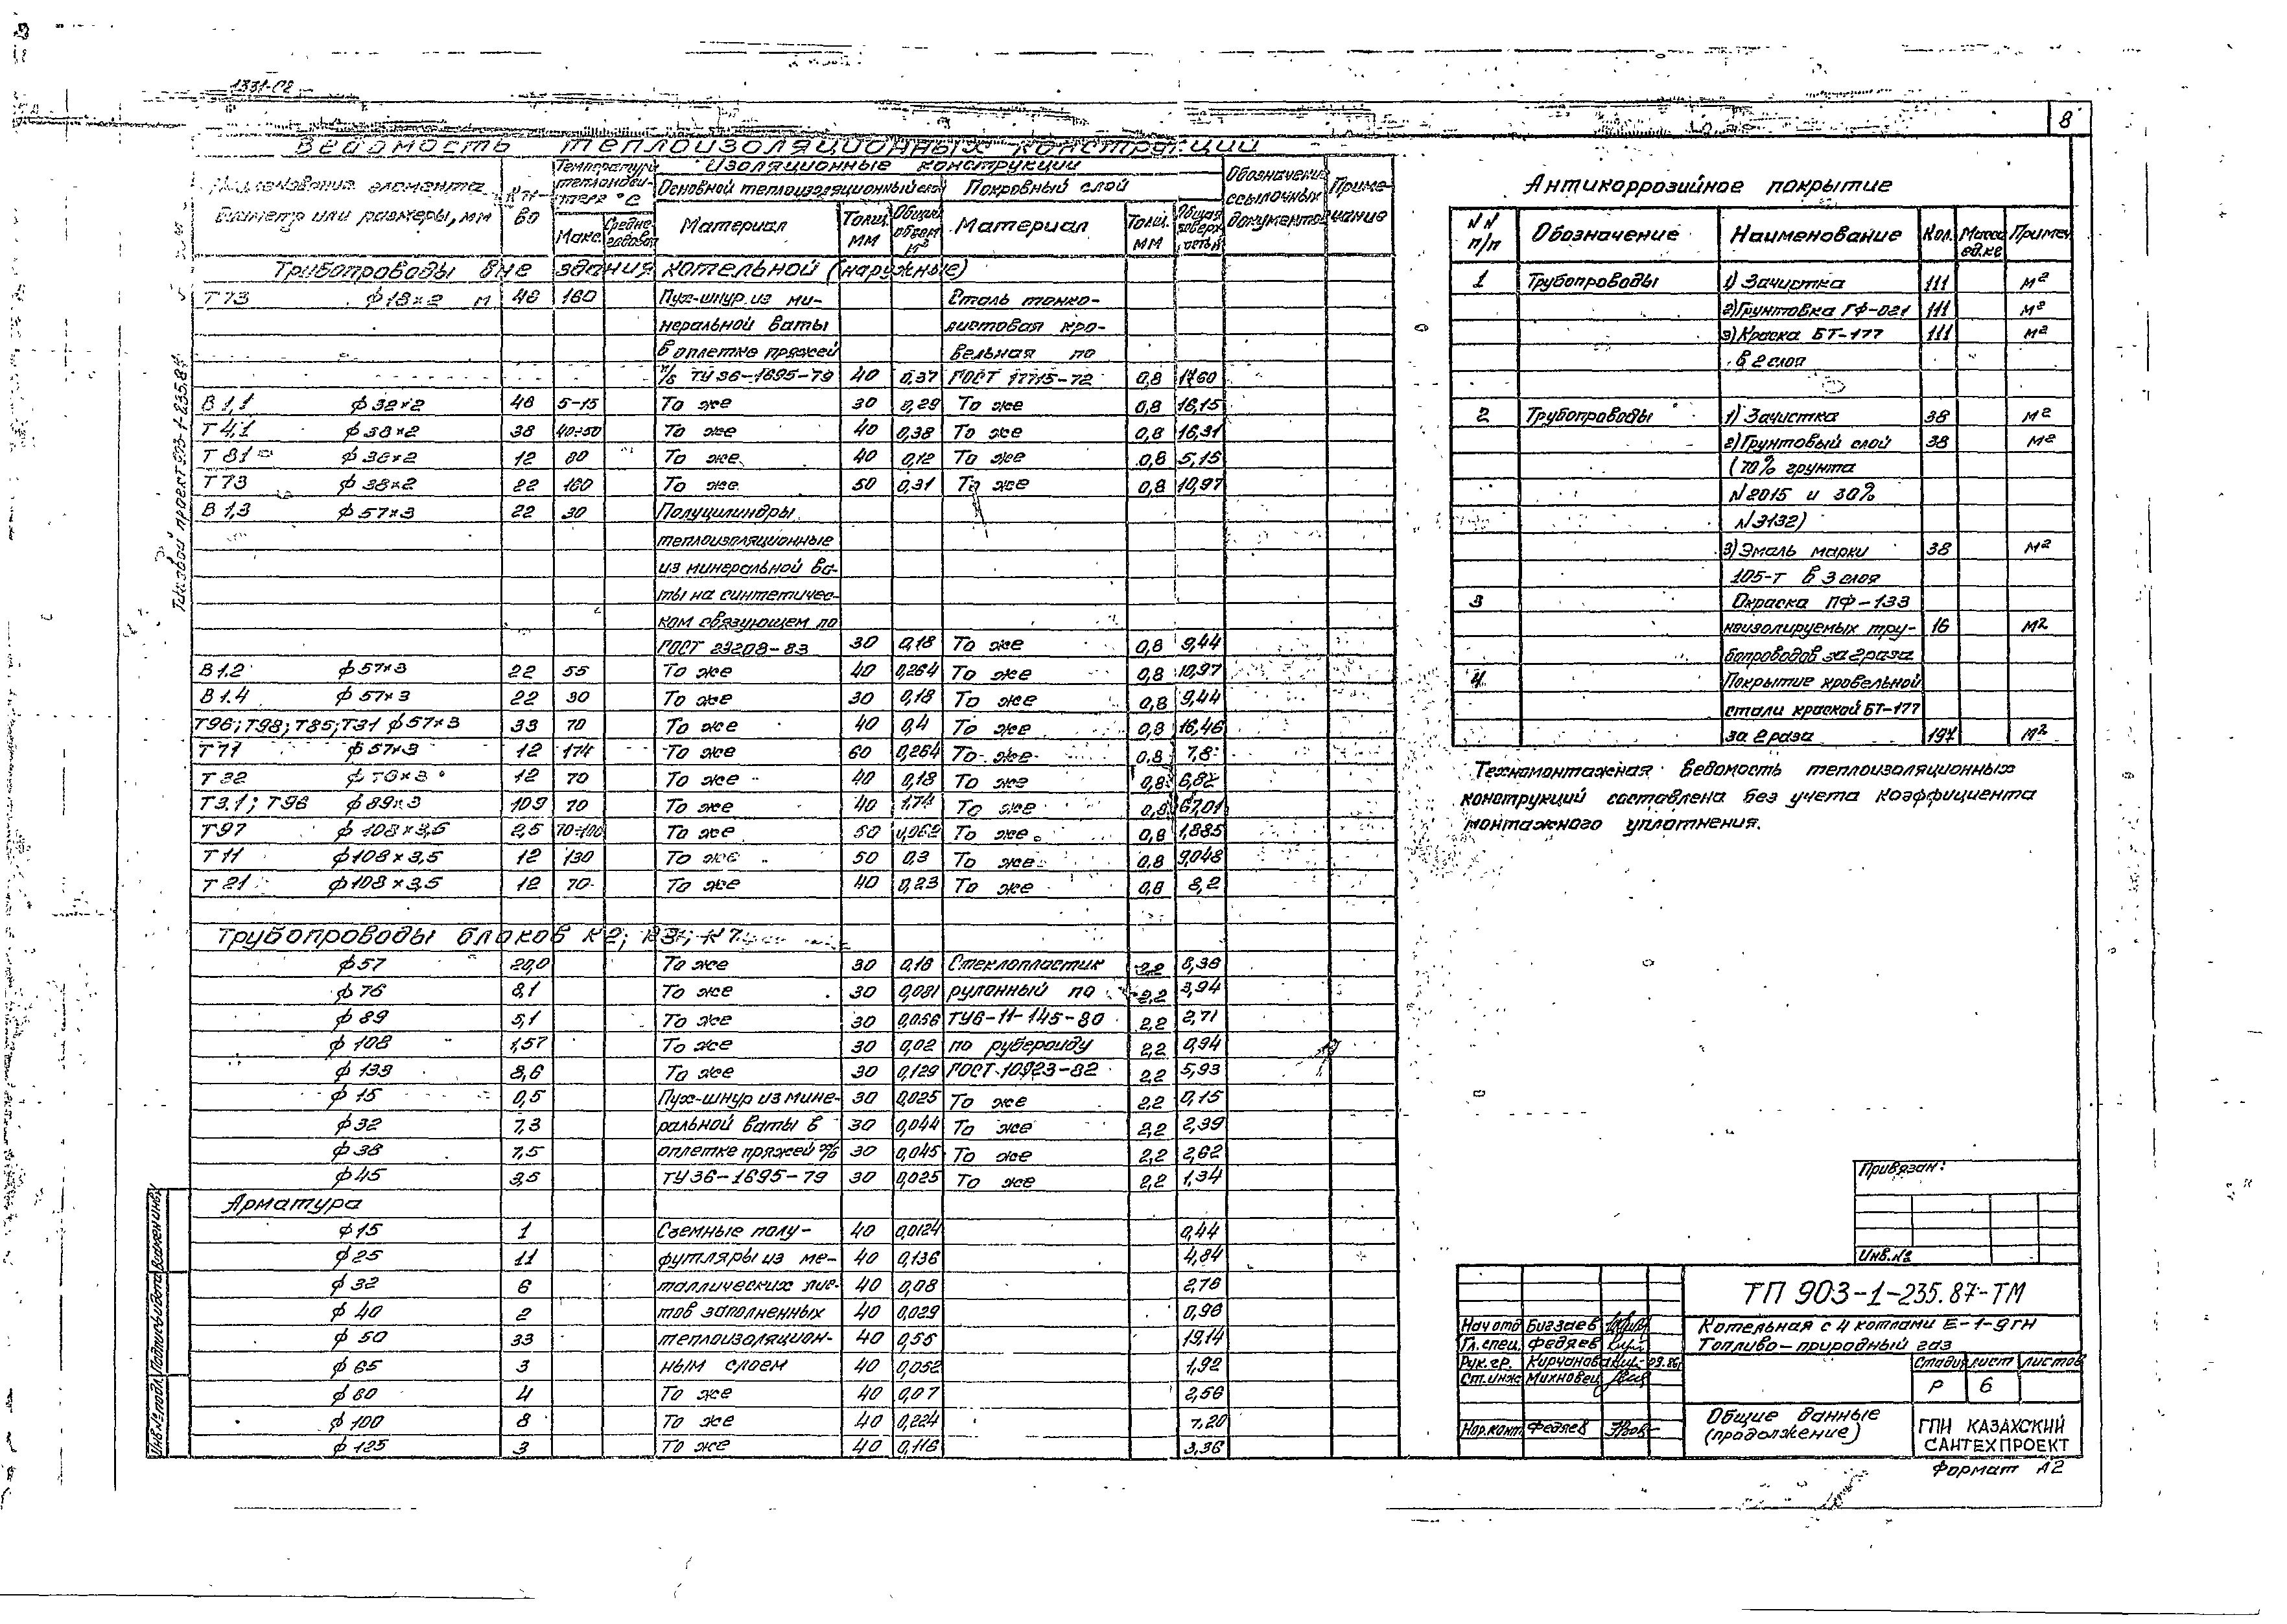 1331-02
8
Ведомость теплоизоляционных конструкций
Наименование элемента
диаметр или размеры, мм
Кол-
во
Температура
теплоноси-
теля °С
Макс.
Средне-
годовая
Изоляционные конструкции
Основной теплоизоляционный слой
Покровный слой
Материал
Толщ.
мм
Общий
объем
Материал
Толщ.
мм
Общая
поверх
Обозначение
ссылочных
документов
Приме-
чание
Трубопроводы вне здания котельной (наружные)
Т 73 ф 18×2 м 46 160 Пух-шнур из ми- Сталь тонко-
неральной ваты листовая кро-
в оплетке пряжей вельная по
х/б ТУ 36-1695-79 40 0,37 ГОСТ 17715-72 0,8
В 1,1 ф 32×2 46 5-15 То же 30 0,29 То же 0,8 16,15
Т 4,1 ф 38×2 38 40÷50 То же 40 0,38 То же 0,8 16,31
Т 81 ф 38×2 12 80 То же 40 0,12 То же 0,8 5,15
Т 73 ф 38×2 22 160 То же 50 0,31 То же 0,8 10,97
В 1,3 ф 57×3 22 30 Полуцилиндры
теплоизоляционные
из минеральной ва-
ты на синтетичес-
ком связующем по
ГОСТ 23208-83 30 0,18 То же 0,8 9,44
В 1.2 ф 57×3 22 55 То же 40 0,264 То же 0,8 10,97
В 1.4 ф 57×3 22 30 То же 30 0,18 То же 0,8 9,44
Т96; Т98; Т85; Т31 ф 57×3 33 70 То же 40 0,4 То же 0,8 16,46
Т 71 ф 57×3 12 174 То же 60 0,264 То же 0,8 7,8
Т 32 ф 76×3 12 70 То же 40 0,18 То же 0,8 6,82
Т3.1; Т96 ф 89×3 109 70 То же 40 1,74 То же 0,8 67,01
Т 97 ф 108×3,5 2,5 70÷100 То же 50 0,062 То же 0,8 1,885
Т 11 ф 108×3,5 12 130 То же 50 0,3 То же 0,8 9,048
Т 21 ф 108×3,5 12 70 То же 40 0,23 То же 0,8 8,2
Трубопроводы блоков К2;
ф 57 20,0 То же 30 0,16 Стеклопластик 2,2 8,36
ф 76 8,1 То же 30 0,081 рулонный по 2,2 3,94
ф 89 5,1 То же 30 0,056 ТУ6-11-145-80 2,2 2,71
ф 108 1,57 То же 30 0,02 по рубероиду 2,2 0,94
ф 133 8,6 То же 30 0,129 ГОСТ 10923-82 2,2 5,93
ф 15 0,5 Пух-шнур из мине- 30 0,025 То же 2,2 0,15
ф 32 7,3 ральной ваты в 30 0,044 То же 2,2 2,39
ф 38 7,5 оплетке пряжей х/б 30 0,045 То же 2,2 2,62
ф 45 3,5 ТУ 36-1695-79 30 0,025 То же 2,2 1,34
Арматура
ф 15 1 Съемные полу- 40 0,0124 0,44
ф 25 11 футляры из ме- 40 0,136 4,84
ф 32 6 таллических лис- 40 0,08 2,76
ф 40 2 тов заполненных 40 0,029 0,96
ф 50 33 теплоизоляцион- 40 0,56 19,14
ф 65 3 ным слоем 40 0,052 1,92
ф 80 4 То же 40 0,07 2,56
ф 100 8 То же 40 0,224 7,20
ф 125 3 То же 40 0,116 3,36
Антикоррозийное покрытие
NN
п/п Обозначение Наименование Кол. Масса
ед.кг Примеч
1 Трубопроводы 1) Зачистка 111 м²
2) Грунтовка ГФ-021 111 м²
3) Краска БТ-177 111 м²
в 2 слоя
2 Трубопроводы 1) Зачистка 38 м²
2) Грунтовый слой 38 м²
(70% грунта
N2015 и 30%
N3132)
3) Эмаль марки 38 м²
105-Т в 3 слоя
3 Окраска ПФ-133
неизолируемых тру- 16 м²
бопроводов за 2 раза
4 Покрытие кровельной
стали краской БТ-177
за 2 раза 197 м²
Техномонтажная ведомость теплоизоляционных
конструкций составлена без учета коэффициента
монтажного уплотнения.
Типовой проект 903-1-235.87
Привязан:
Инв.№
ТП 903-1-235.87-ТМ
Нач отд Бигзаев
Гл. спец. Федяев
Рук. гр. Кирчанова 09.86
Ст. инж Михновец
Нор. конт. Федяев
Котельная с 4 котлами Е-1-9гн
Топливо-природный газ
Стадия Лист Листов
Р 6
Общие данные
(продолжение)
ГПИ КАЗАХСКИЙ
САНТЕХПРОЕКТ
Формат А2
Инв.№ подл. Подпись и дата Взамен инв.№